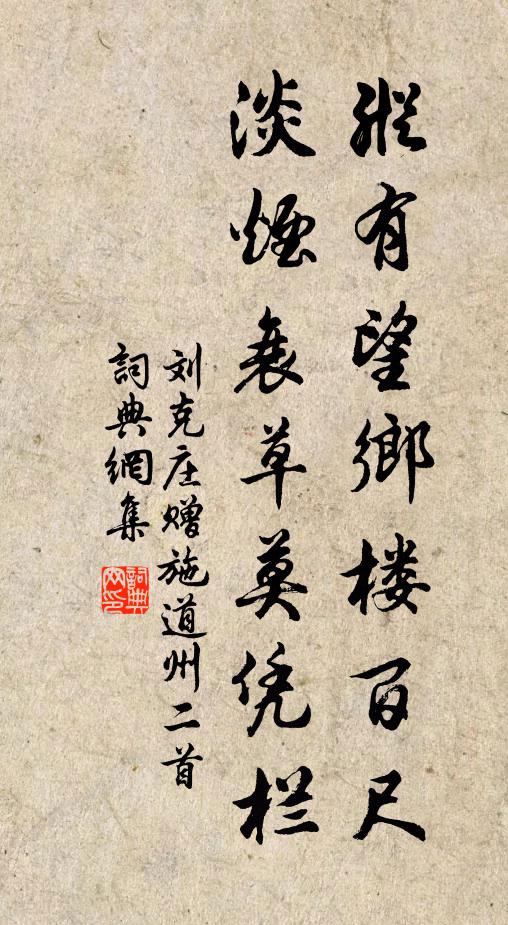 縱有望鄉楼百尺
淡煙衰草莫凭栏
刘克庄赠施道州二首
詞典網集
詞典网印